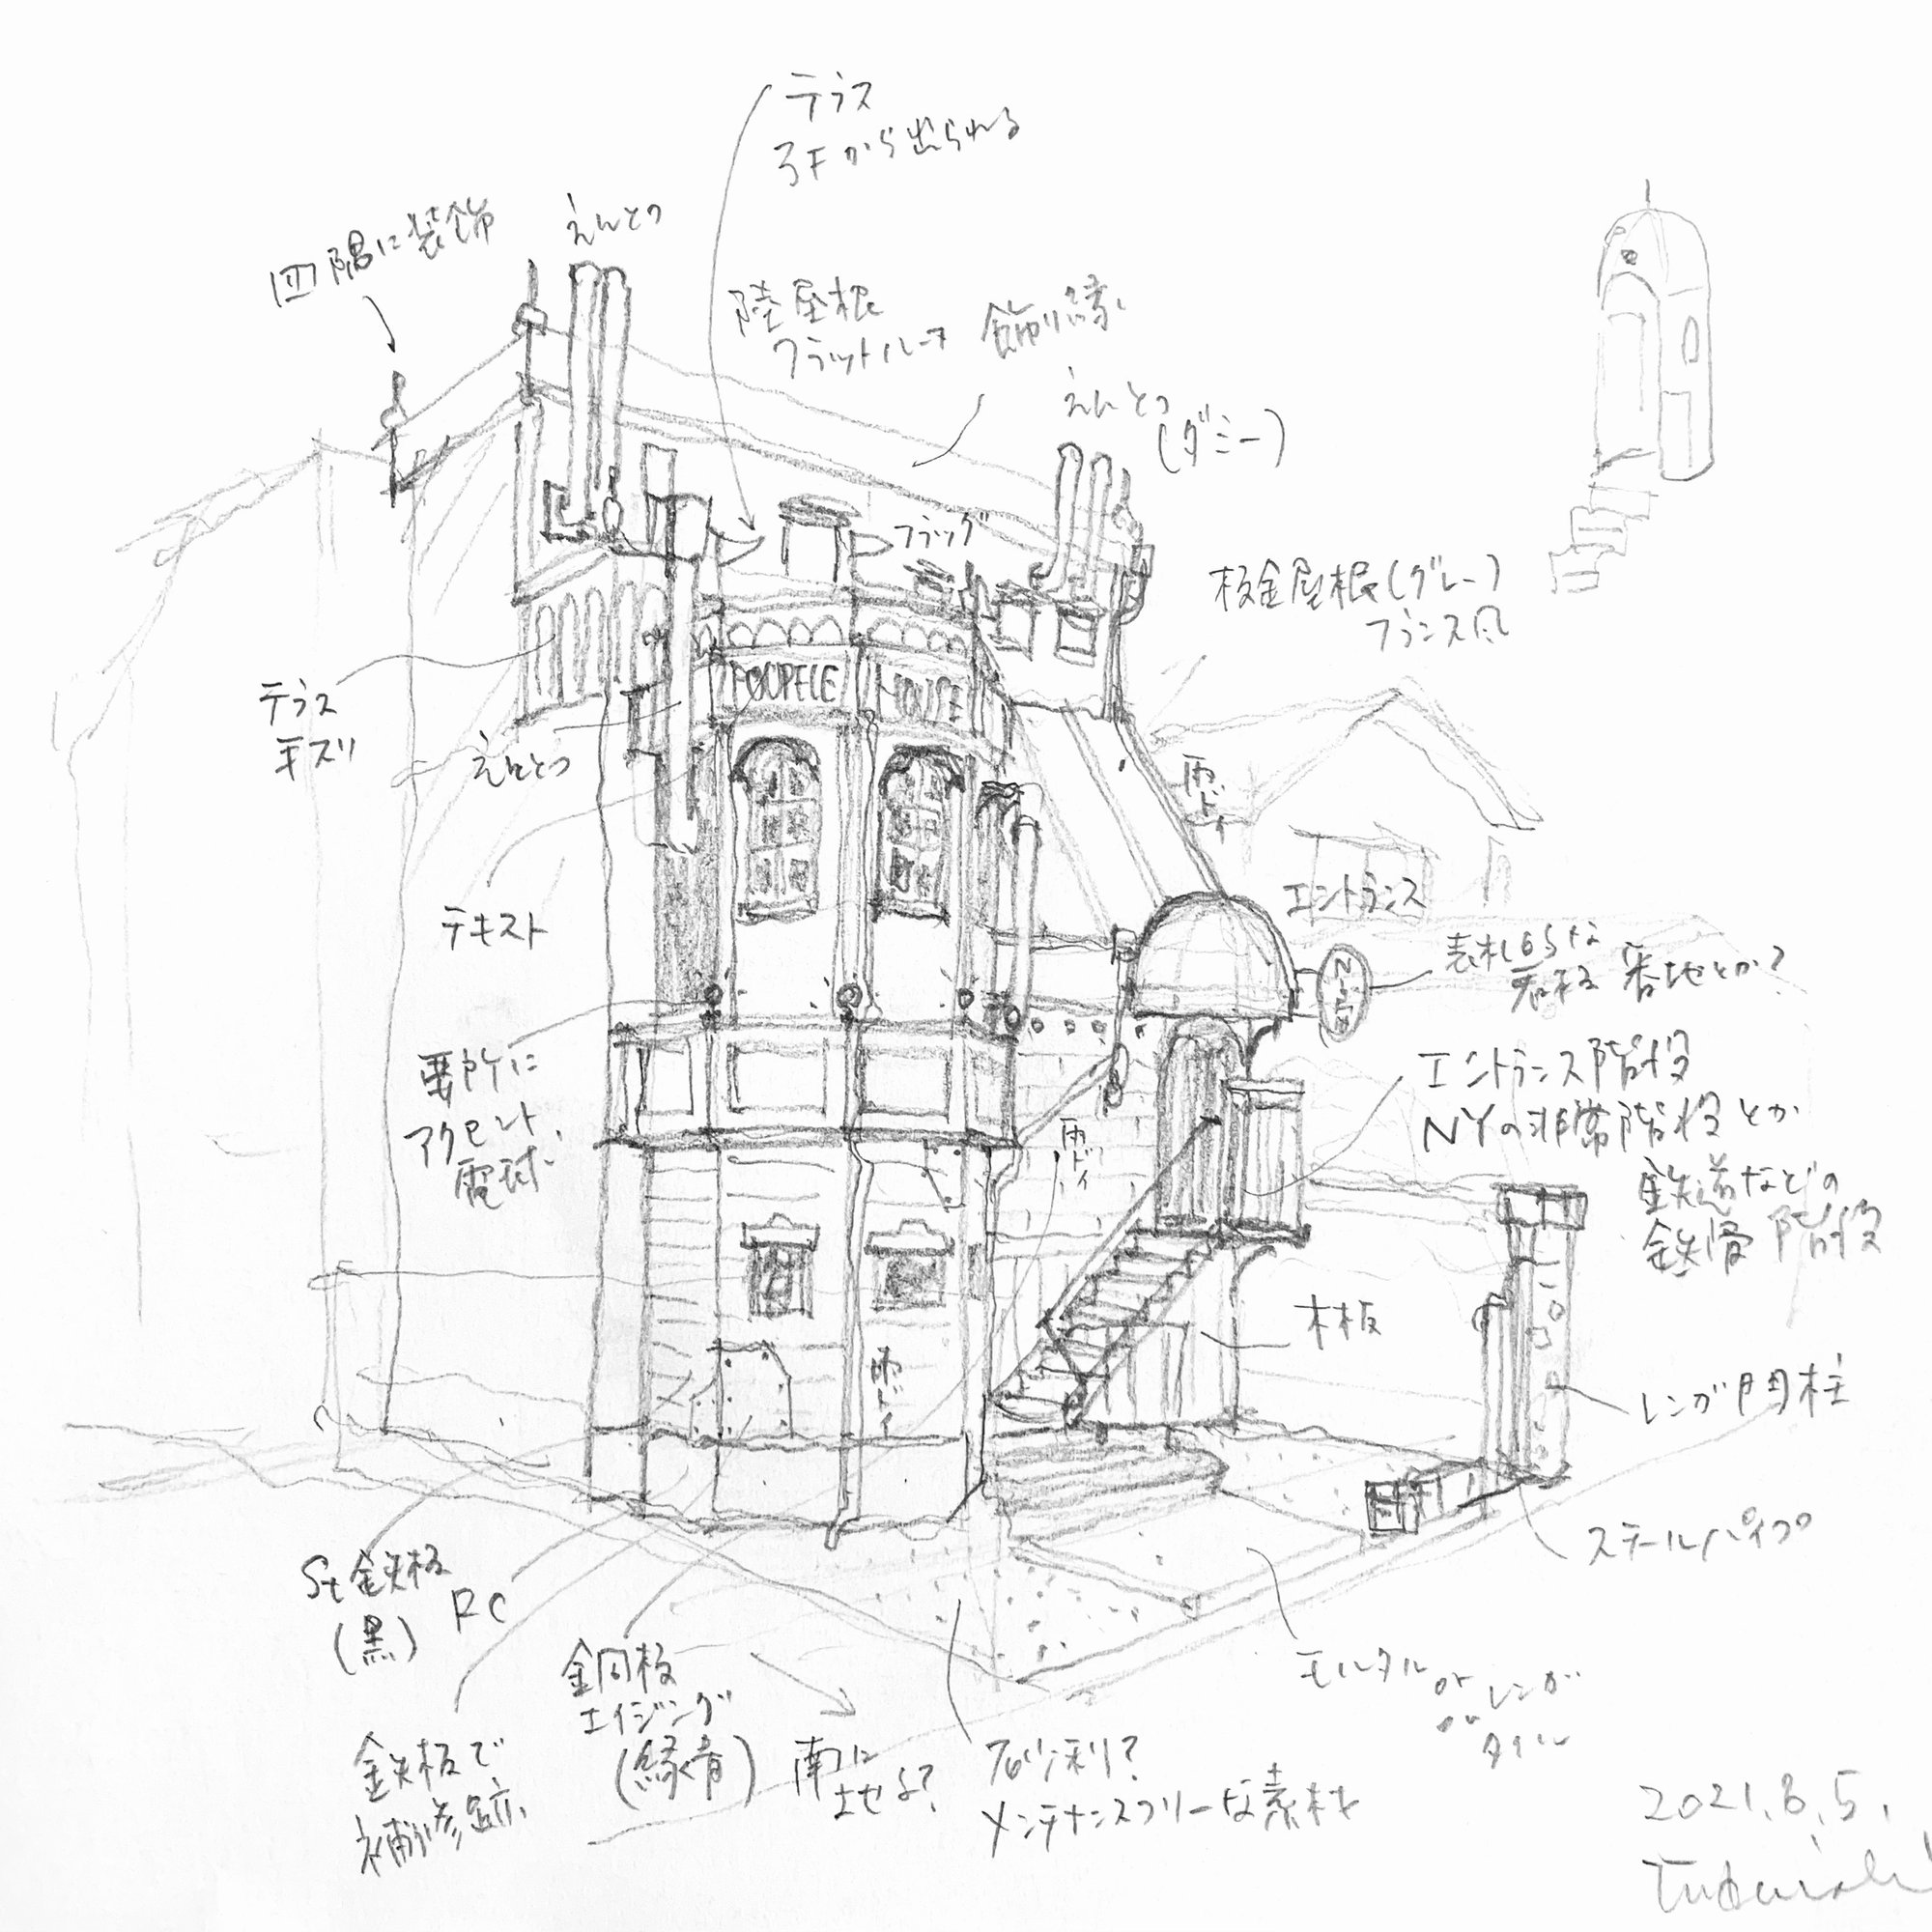 テラス
3Fから出られる
四隅に装飾
えんとつ
陸屋根
フラットルーフ
飾り縁
えんとつ
(ダミー)
フラッグ
板金屋根(グレー)
フランス風
テラス
手ズリ
えんとつ
POUPELLE
HOUSE
雨トイ
テキスト
エントランス
表札的な
看板 番地とか?
要所に
アクセント
電球
雨ドイ
エントランス階段
NYの非常階段とか
鉄道などの
鉄骨階段
木板
雨ドイ
レンガ門柱
スチールパイプ
St鉄板
(黒)
RC
銅板
エイジング
(緑青)
鉄板で
補修跡
南に
砂利?
メンテナンスフリーな素材
モルタル or レンガ
タイル
2021.8.5.